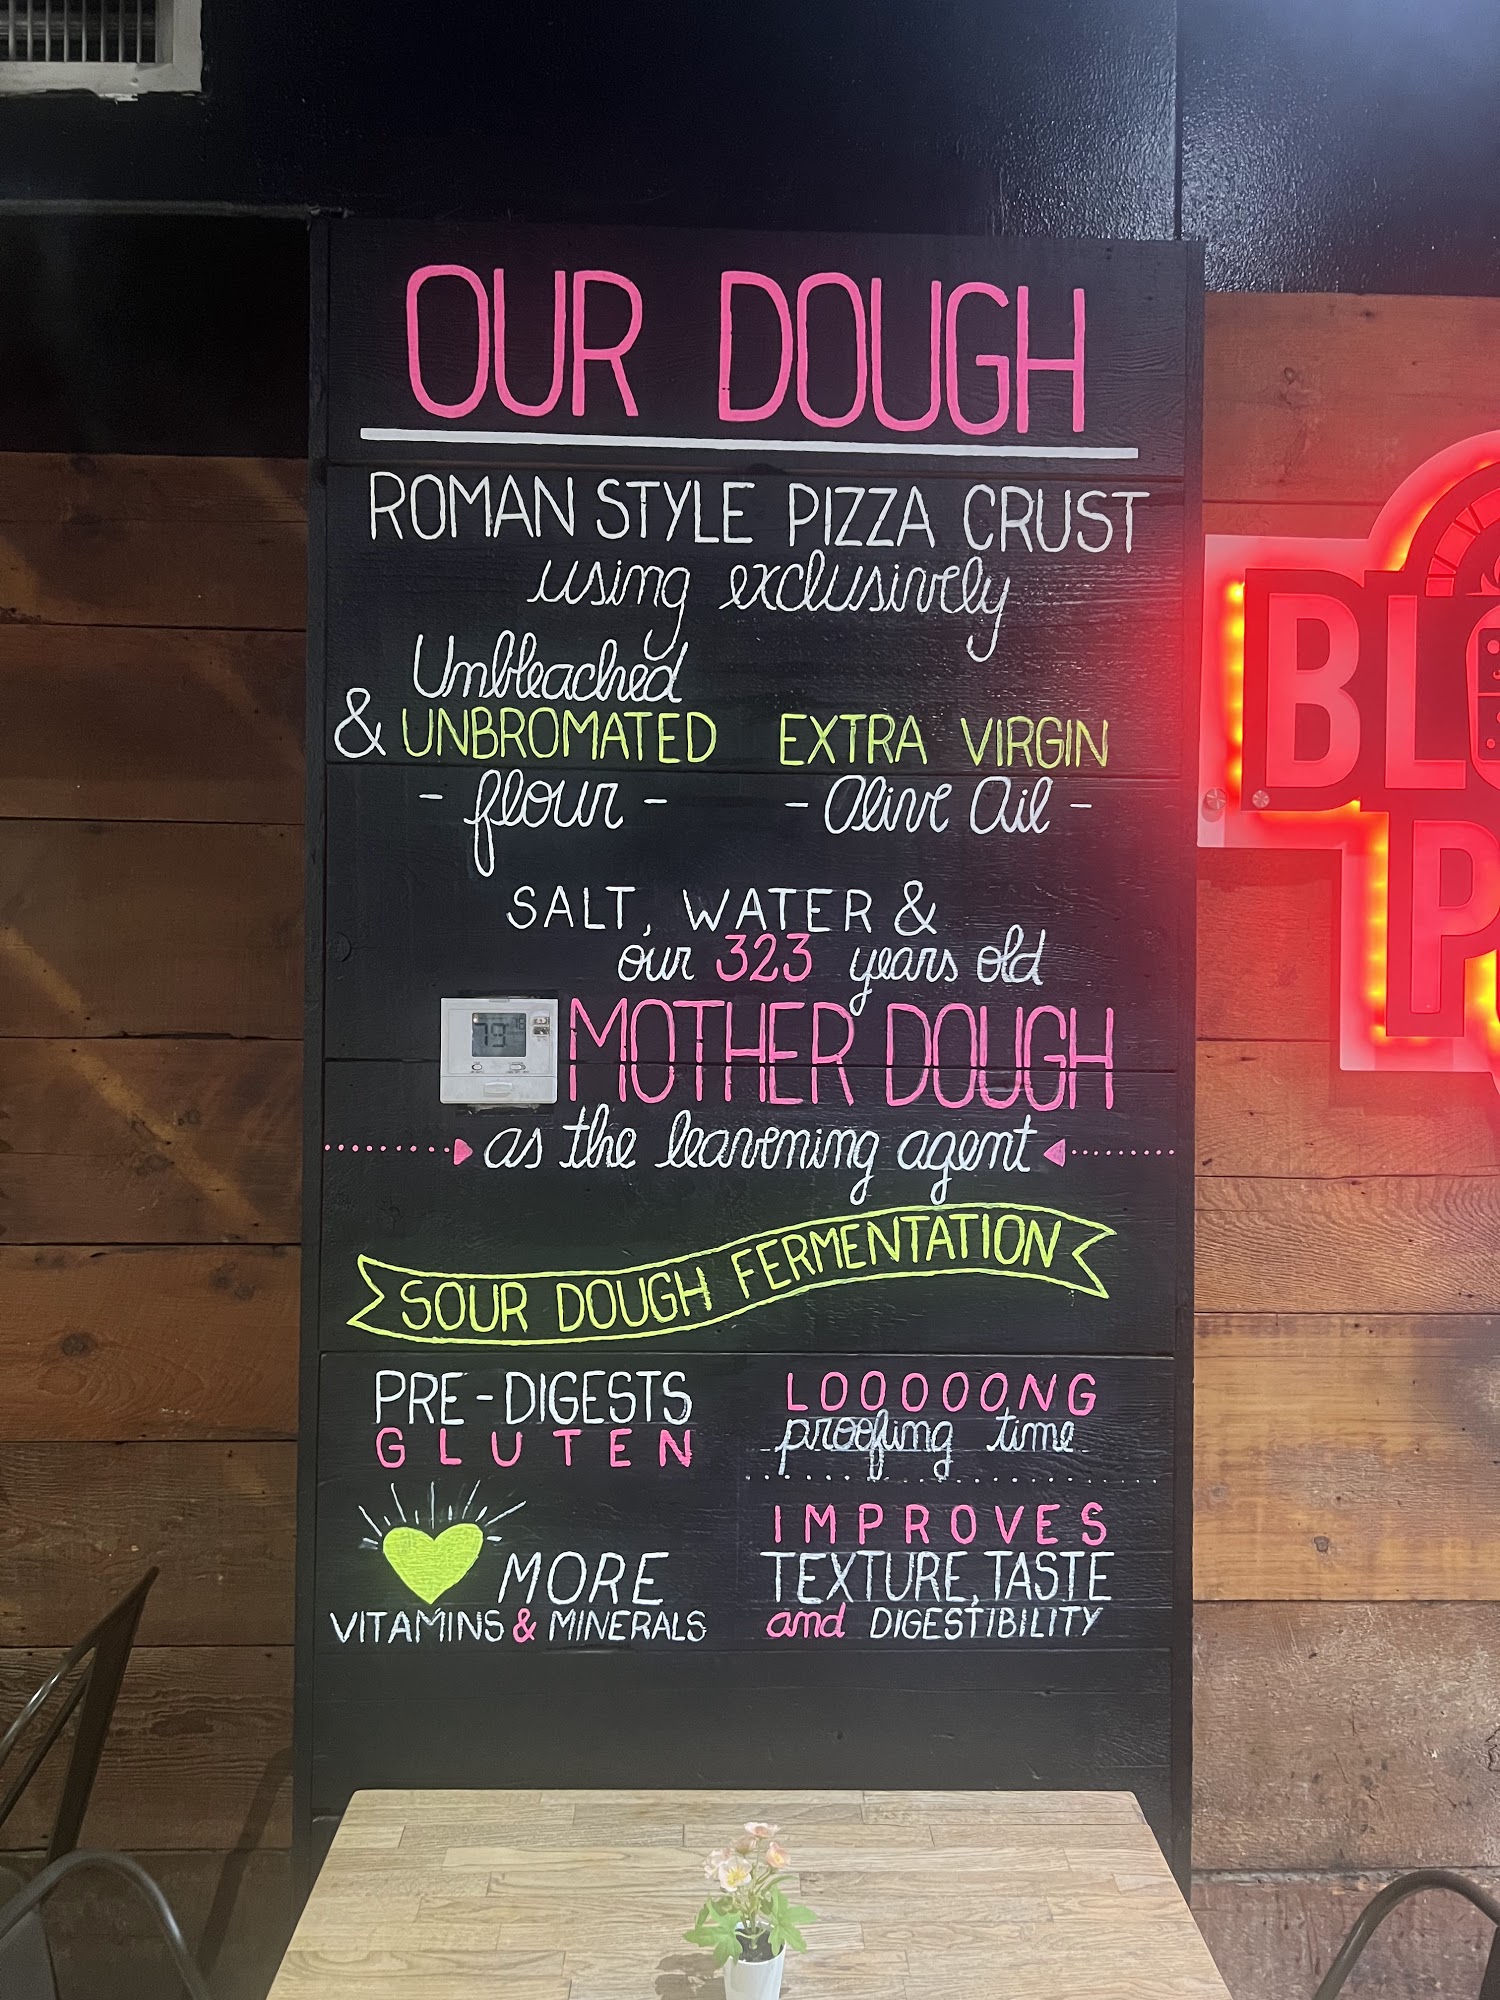 OUR DOUGH
ROMAN STYLE PIZZA CRUST
using exclusively
Unbleached
& UNBROMATED
- flour -
EXTRA VIRGIN
- Olive Oil -
SALT, WATER &
our 323 years old
MOTHER DOUGH
as the leavening agent
SOUR DOUGH FERMENTATION
PRE-DIGESTS
GLUTEN
MORE
VITAMINS & MINERALS
LOOOOONG
proofing time
IMPROVES
TEXTURE, TASTE
and DIGESTIBILITY
79